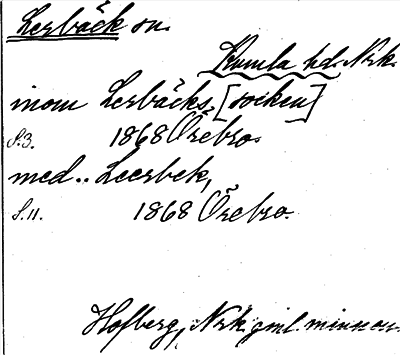 Lerbäck sn.
Kumla hd. Nrk.
inom Lerbäcks, [socken]
S.3. 1868 Örebro.
med.. Leerbek,
S.11. 1868 Örebro.
Hofberg, Nrk. gml. minnen.